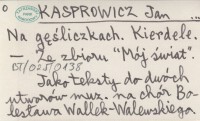 o KASPROWICZ Jan
Na gęśliczkach. Kierdele.
— Ze zbioru "Mój świat".
CT/025/0138
Jako teksty do dwóch
utworów muz. na chór Bo-
lesława Wallek-Walewskiego